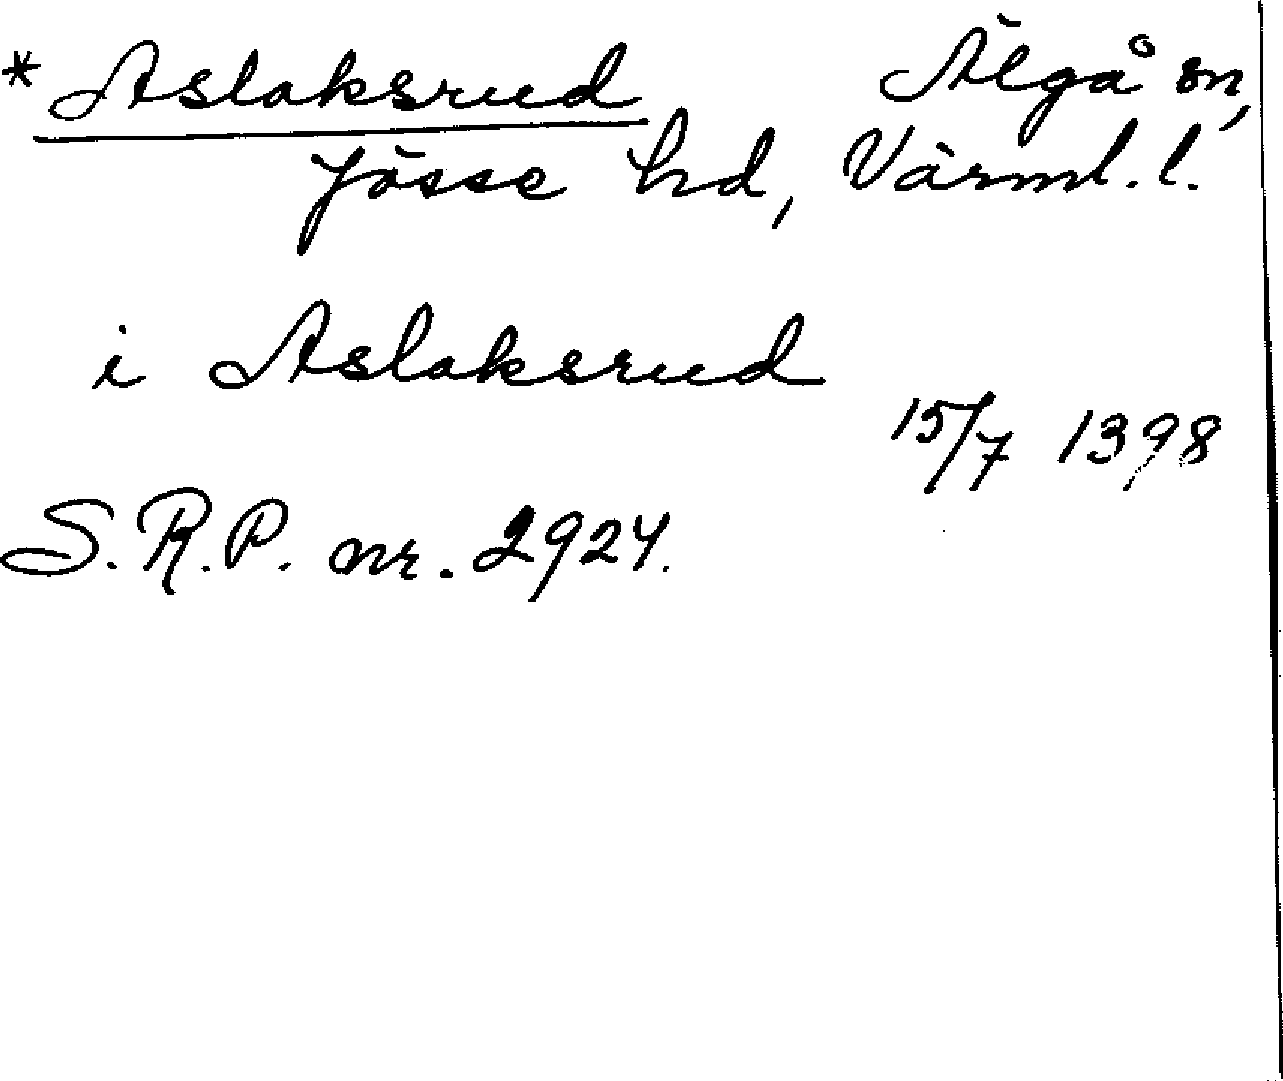 *Aslaksrud Älgå sn,
Jösse hd, Värml. l.
i Aslaksrud
15/7 1398
S.R.P. nr. 2924.